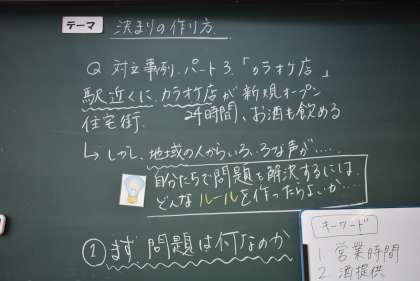 テーマ 決まりの作り方.
Q 対立事例.パート3.「カラオケ店」
駅近くに.カラオケ店が新規オープン
住宅街. 24時間、お酒も飲める
↳しかし、地域の人からいろいろな声が.....
自分たちで問題を解決するには、
どんなルールを作ったらよいか....
① まず.問題は何なのか
キーワード
1. 営業時間
2. 酒提供